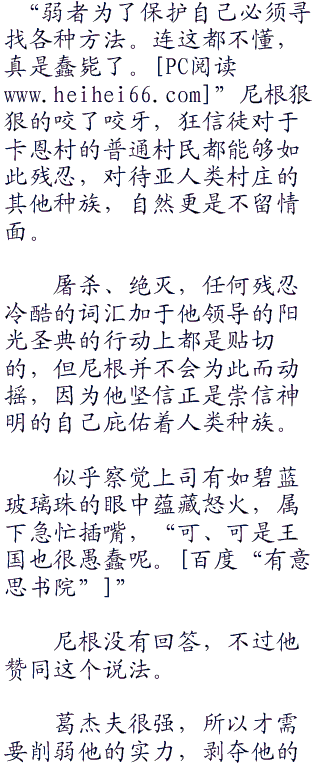 “弱者为了保护自己必须寻
找各种方法。连这都不懂，
真是蠢毙了。[PC阅读
www.heihei66.com]”尼根狠
狠的咬了咬牙，狂信徒对于
卡恩村的普通村民都能够如
此残忍，对待亚人类村庄的
其他种族，自然更是不留情
面。
屠杀、绝灭，任何残忍
冷酷的词汇加于他领导的阳
光圣典的行动上都是贴切
的，但尼根并不会为此而动
摇，因为他坚信正是崇信神
明的自己庇佑着人类种族。
似乎察觉上司有如碧蓝
玻璃珠的眼中蕴藏怒火，属
下急忙插嘴，“可、可是王
国也很愚蠢呢。[百度“有意
思书院”]”
尼根没有回答，不过他
赞同这个说法。
葛杰夫很强，所以才需
要削弱他的实力，剥夺他的